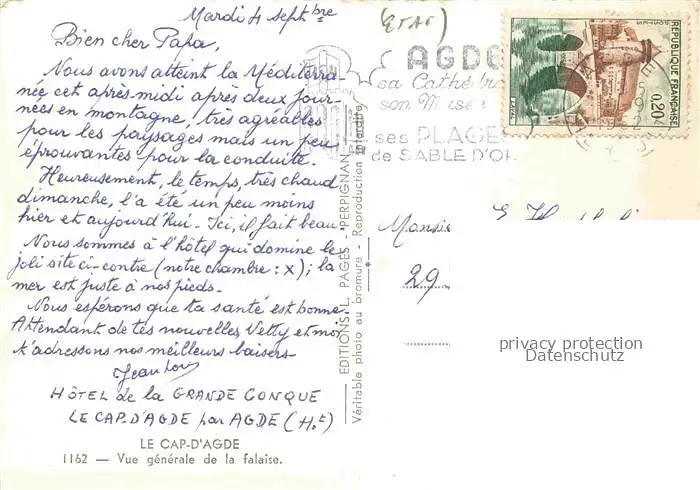 Mardi 4 septbre
Bien cher Papa,
Nous avons atteint la Méditerra-
née cet après-midi après deux jour-
nées en montagne, très agréables
pour les paysages mais un peu
éprouvantes pour la conduite.
Heureusement, le temps, très chaud
dimanche, l'a été un peu moins
hier et aujourd'hui. Ici, il fait beau.
Nous sommes à l'hôtel qui domine le
joli site ci-contre (notre chambre : X); la
mer est juste à nos pieds.
Nous espérons que ta santé est bonne.
Attendant de tes nouvelles, Vetty et moi
t'adressons nos meilleurs baisers.
Jean Louis
HÔTEL de la GRANDE CONQUE
LE CAP-D'AGDE par AGDE (Ht)
LE CAP-D'AGDE
1162 — Vue générale de la falaise.
EDITIONS L. PAGÈS - PERPIGNAN
Véritable photo au bromure - Reproduction interdite
AGDE
sa Cathédra
son Musée
ses PLAGE
de SABLE D'OR
POSTES
REPUBLIQUE FRANÇAISE
0,20
Monsie
29
privacy protection
Datenschutz